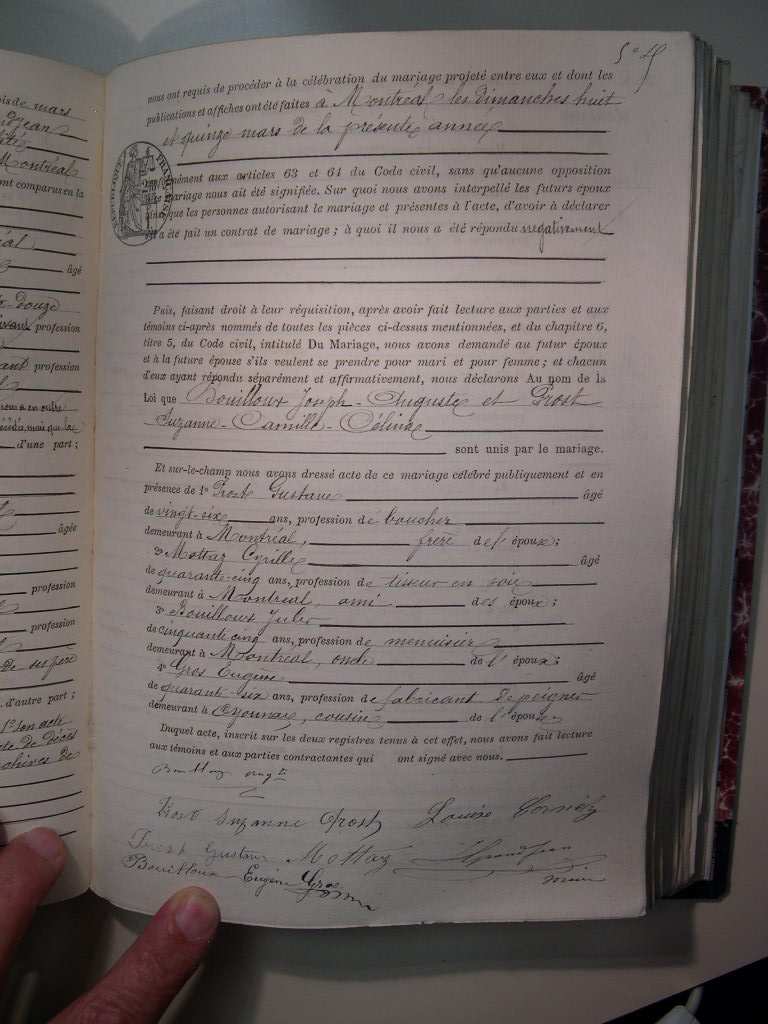 is de mars
djean
Montréal
ont comparus en la
al
âgé
x-douze
profession
ant profession
nous a en outre
mais que la
d'une part ;
âgée
profession
profession
de ses père
d'autre part ;
1° son acte
te de décès
chives de
nous ont requis de procéder à la célébration du mariage projeté entre eux et dont les
publications et affiches ont été faites à Montréal les dimanches huit
et quinze mars de la présente année
Conformément aux articles 63 et 64 du Code civil, sans qu'aucune opposition
mariage nous ait été signifiée. Sur quoi nous avons interpellé les futurs époux
que les personnes autorisant le mariage et présentes à l'acte, d'avoir à déclarer
a été fait un contrat de mariage ; à quoi il nous a été répondu négativement
Puis, faisant droit à leur réquisition, après avoir fait lecture aux parties et aux
témoins ci-après nommés de toutes les pièces ci-dessus mentionnées, et du chapitre 6,
titre 5, du Code civil, intitulé Du Mariage, nous avons demandé au futur époux
et à la future épouse s'ils veulent se prendre pour mari et pour femme ; et chacun
d'eux ayant répondu séparément et affirmativement, nous déclarons Au nom de la
Loi que Bouilloux Joseph-Auguste et Prost
Suzanne-Camille-Célina
sont unis par le mariage.
Et sur-le-champ nous avons dressé acte de ce mariage célébré publiquement et en
présence de 1° Prost Gustave âgé
de vingt-six ans, profession de boucher
demeurant à Montréal, frère de l' époux ;
2° Mottaz Cyrille âgé
de quarante-cinq ans, profession de tisseur en soie
demeurant à Montréal, ami des époux ;
3° Bouilloux Jules
de cinquante cinq ans, profession de menuisier
demeurant à Montréal, oncle de l' époux ;
4° Gros Eugène âgé
de quarante-six ans, profession de fabricant de peignes
demeurant à Oyonnax, cousin de l' époux
Duquel acte, inscrit sur les deux registres tenus à cet effet, nous avons fait lecture
aux témoins et aux parties contractantes qui ont signé avec nous.
Prost Suzanne Prost Louise
Prost Gustave Mottaz Grandjean
Bouilloux Eugène Gros